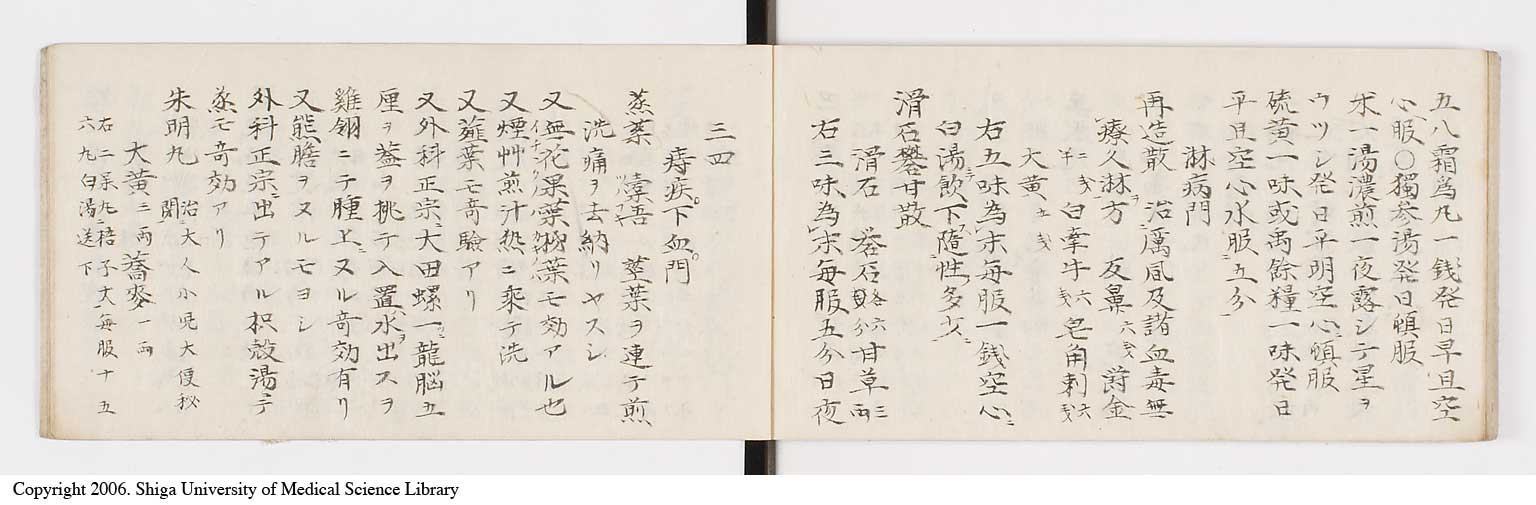 五八霜為丸一銭発日早旦空
心服〇獨参湯発日頓服
朮一湯濃煎一夜露シテ星ヲ
ウツシ発日平明空心頓服
硫黄一味或禹餘糧一味発日
平旦空心水服五分
淋病門
再造散 治厲風及諸血毒無
療久淋方 反鼻六戔 欝金
二戔半 白牽牛六戔 皂角刺六戔
大黄五戔
右五味為末毎服一銭空心ニ
白湯ニ飲下随性多少ニ
滑石礬甘散
滑石 礬石各六分 甘草三両
右三味為末毎服五分日夜
三四
痔疾下血門
蒸薬 橐吾 莖葉ヲ連テ煎
洗痛ヲ去納リヤスシ
又無花果葉柳葉モ効アル也
イチヂク
又煙艸煎汁熱ニ乗テ洗
又薤葉モ奇驗アリ
又外科正宗ニ大田螺一ツ龍脳五
厘ヲ葢ヲ桃テ入置水出ヌヲ
雞翎ニテ腫上ニヌル奇効有リ
又熊膽ヲヌルモヨシ
外科正宗ニ出テアル枳殻湯ニテ
蒸モ奇効アリ
朱明丸 治大人小児大便秘閉
大黄三両 蕎麥一両
右二味丸梧子大毎服十五
六丸白湯ニ送下
Copyright 2006. Shiga University of Medical Science Library